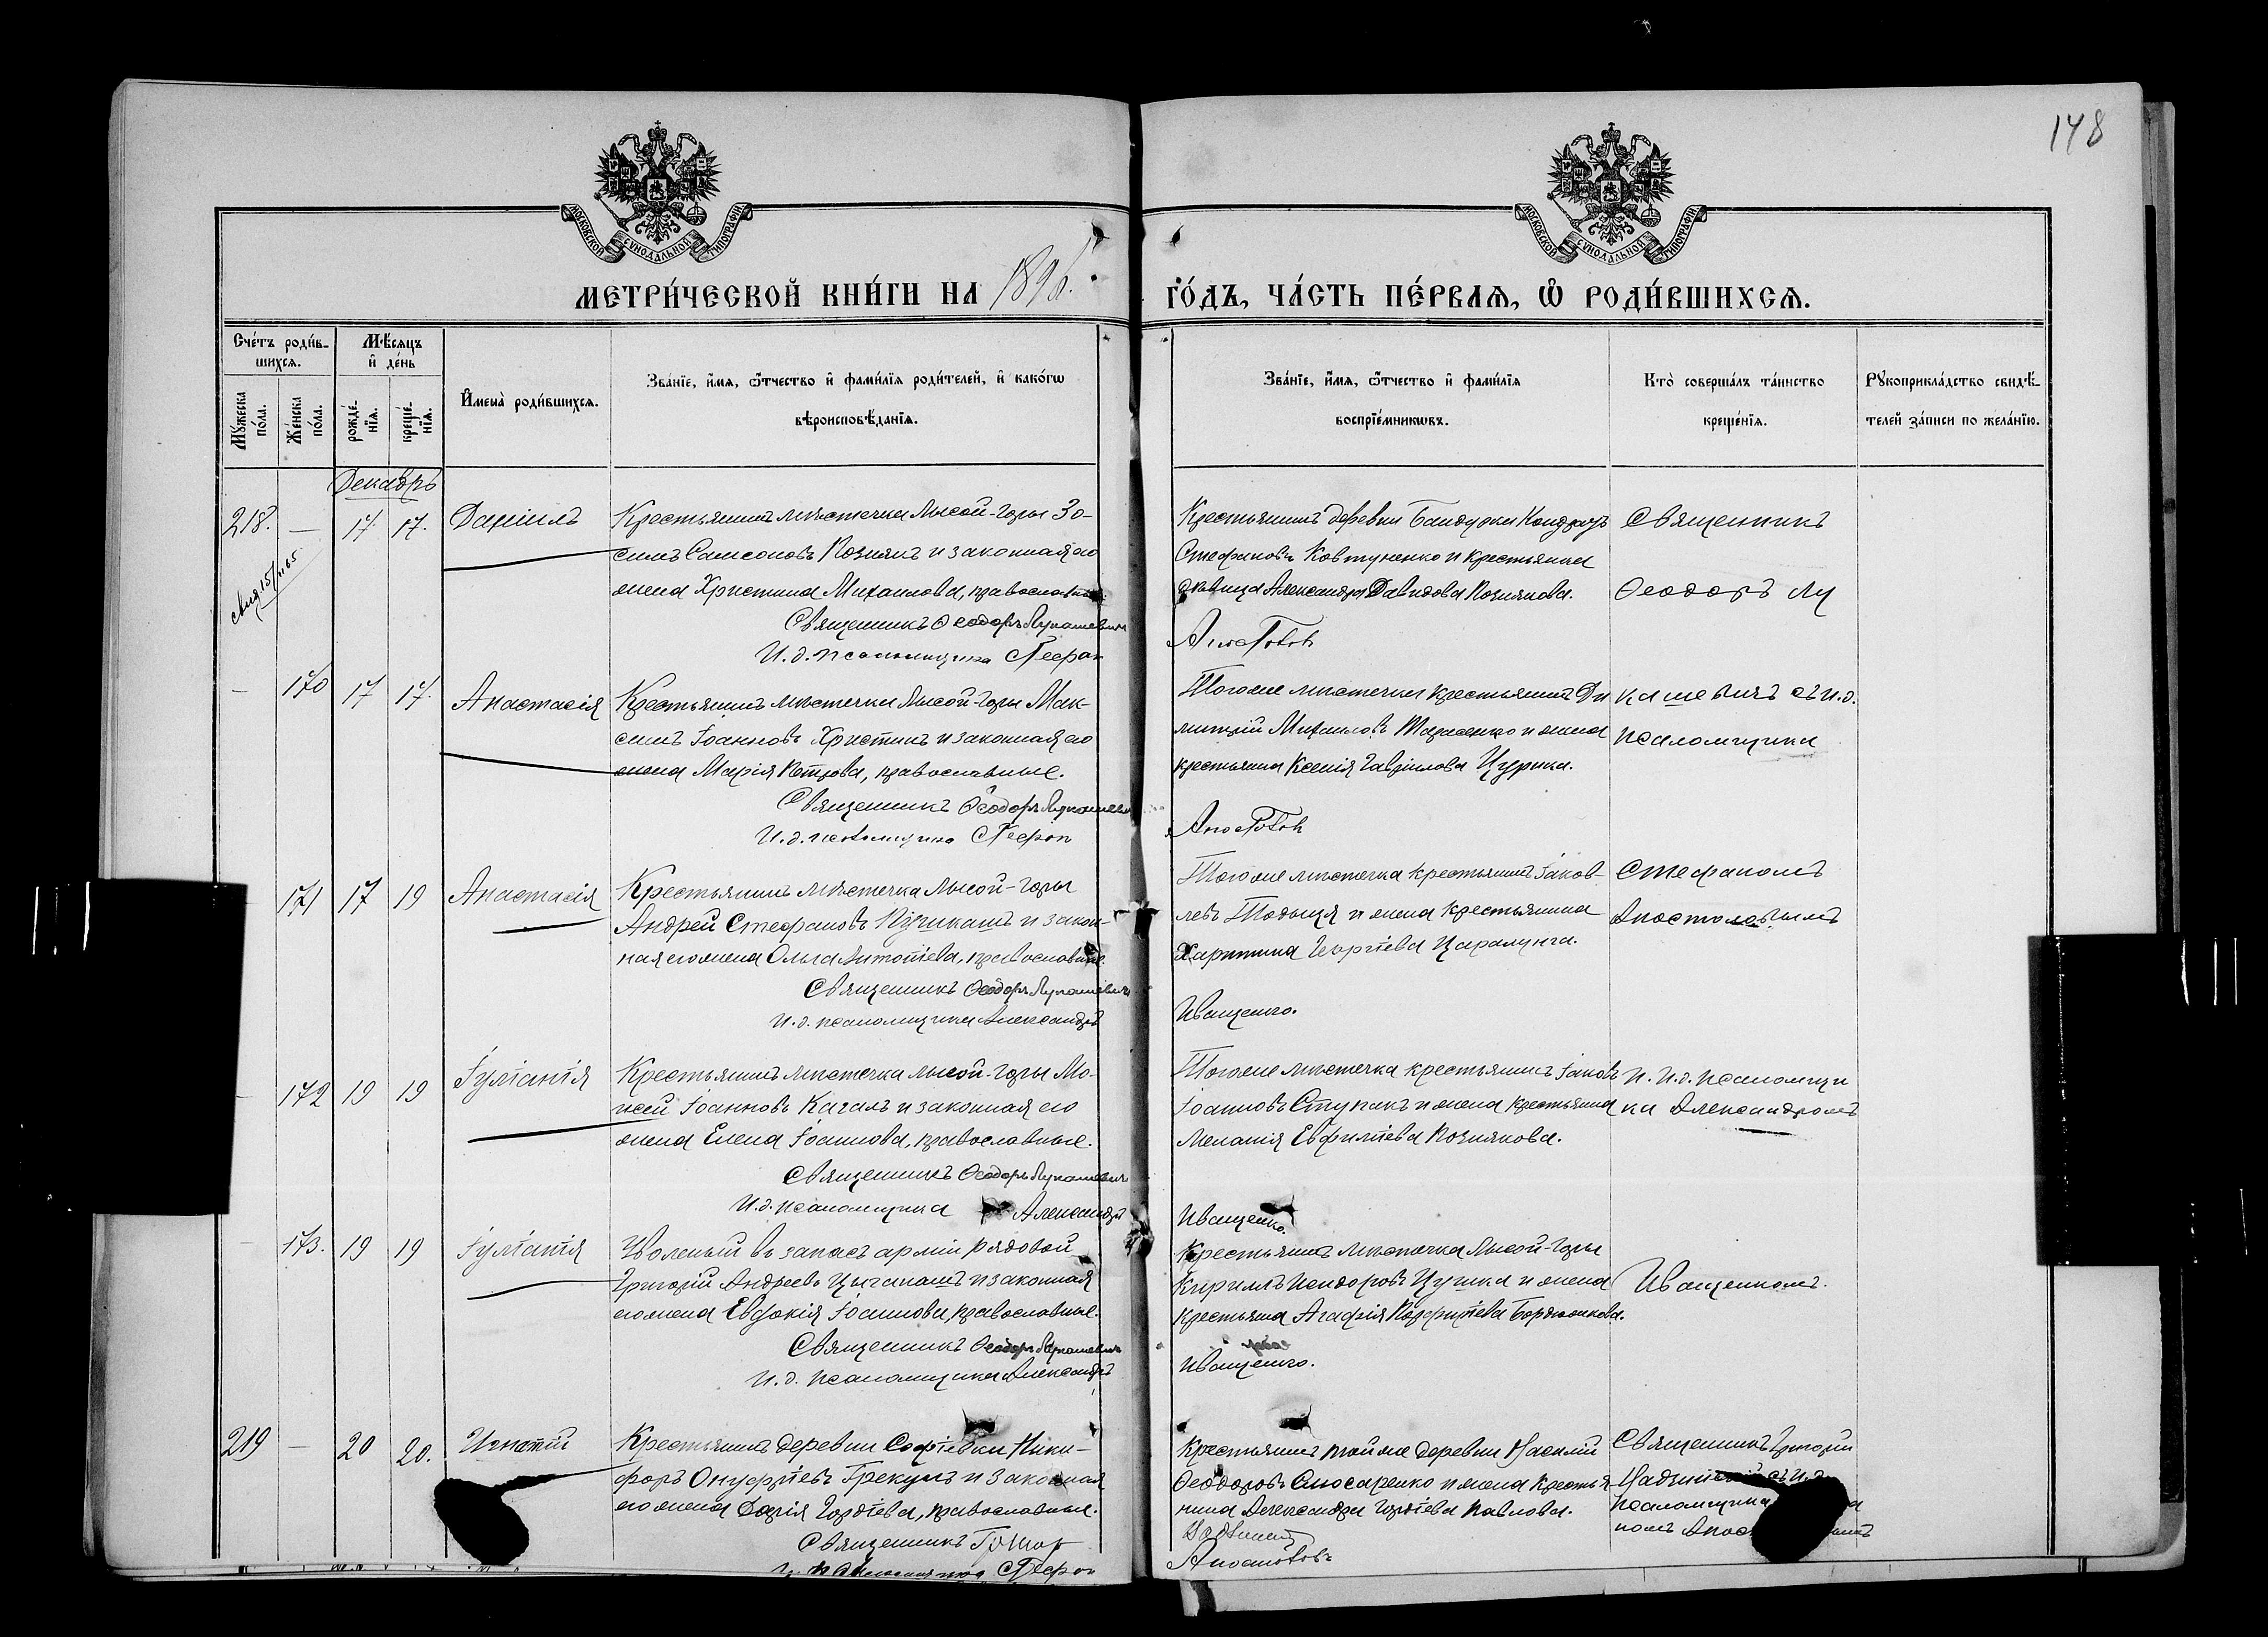 148
МОСКОВСКОЙ СѴНОДАЛЬНОЙ ТИПОГРАФІИ
МОСКОВСКОЙ СѴНОДАЛЬНОЙ ТИПОГРАФІИ
МЕТРИ́ЧЕСКОЙ КНИ́ГИ НА 1896.
ГО́ДЪ, ЧА́СТЬ ПЕ́РВАѦ, Ѽ РОДИ́ВШИХСѦ.
Сче́тъ роди́в-
шихсѧ.
Мꙋ́жеска по́ла.
Же́нска по́ла.
Мѣ́сѧцъ и҆ де́нь
рожде́-нїѧ.
креще́-нїѧ.
И҆мена̀ роди́вшихсѧ.
Зва́нїе, и҆́мѧ, ѻ҆́тчество и҆ фами́лїѧ роди́телей, и҆ како́гѡ
вѣроисповѣ́данїѧ.
Зва́нїе, и҆́мѧ, ѻ҆́тчество и҆ фами́лїѧ
воспрїе́мникѡвъ.
Кто̀ соверша́лъ та́инство
креще́нїѧ.
Рꙋкоприкла́дство свидѣ́-
телей за́писи по жела́нїю.
Декабрь
218. — 17. 17. Даніилъ
Крестьянинъ мѣстечка Лысой-Горы Зо-
симъ Самсоновъ Познякъ и законная его
жена Христина Михаилова, православные.
Священникъ Ѳеодоръ Лукашевичъ
И.д. псаломщика Стефан
Крестьянинъ деревни Бандурки Кондратъ
Стефановъ Ковтуненко и крестьянка
дѣвица Александра Давидова Познякова.
Апостолов
Священникъ
Ѳеодоръ Лу
— 170 17 17. Анастасія
Крестьянинъ мѣстечка Лысой-Горы Мак-
симъ Іоанновъ Христикъ и законная его
жена Марія Петрова, православные.
Священникъ Ѳеодоръ Лукашевичъ
И.д. псаломщика Стефан
Тогоже мѣстечка крестьянинъ Ди
митрій Михаиловъ Тараненко и жена
крестьянина Ксенія Гавріилова Цурка.
Апостолов
кашевичъ съ и.д.
псаломщика
171 17 19 Анастасія
Крестьянинъ мѣстечка Лысой-Горы
Андрей Стефановъ и закон-
ная его жена Ольга Антоніева, православные.
Священникъ Ѳеодоръ Лукашевичъ
И.д. псаломщика Александръ
Тогоже мѣстечка крестьянинъ Іаков-
левъ и жена крестьянина
Харитина Георгіева Царалунга.
Иващенко.
Стефаномъ
Апостоловымъ
— 172 19 19 Іуліанія
Крестьянинъ мѣстечка Лысой-Горы Мо-
исей Іоанновъ Качалъ и законная его
жена Елена Іоаннова, православные.
Священникъ Ѳеодоръ Лукашевичъ
И.д. псаломщика Александръ
Тогоже мѣстечка крестьянинъ Іаковъ
Іоанновъ Ступакъ и жена крестьянина
Меланія Евфиміева Познякова.
Иващенко.
и. И.д. псаломщи
ка Александромъ
— 173. 19 19 Іуліанія
Уволеный въ запасъ арміи рядовой
Григорій Андреевъ Цыганашъ и законная
его жена Евдокія Іоаннова, православные.
Священникъ Ѳеодоръ Лукашевичъ
И.д. псаломщика Александръ
Крестьянинъ мѣстечка Лысой-Горы
Кириллъ Исидоровъ и жена
крестьянина Агафія Порфиріева
Иващенко.
Иващенкомъ.
219 — 20 20. Игнатій
Крестьянинъ деревни Софіевки Ники-
форъ Онуфріевъ Грекулъ и законная
его жена Дарія Гордіева, православные.
Священникъ Григор
Стефан
Крестьянинъ тойже деревни Василій
Ѳеодоровъ Слюсаренко и жена крестья
нина Александра Гордіева Павлова.
Апостоловъ
Священникъ Григорій
псаломщика